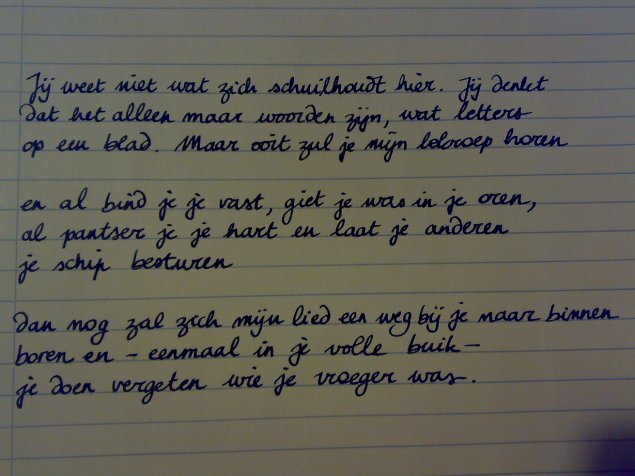 Jij weet niet wat zich schuilhoudt hier. Jij denkt
dat het alleen maar woorden zijn, wat letters
op een blad. Maar ooit zul je mijn lokroep horen
en al bind je je vast, giet je was in je oren,
al pantser je je hart en laat je anderen
je schip besturen
Dan nog zal zich mijn lied een weg bij je naar binnen
boren en - eenmaal in je volle buik -
je doen vergeten wie je vroeger was.